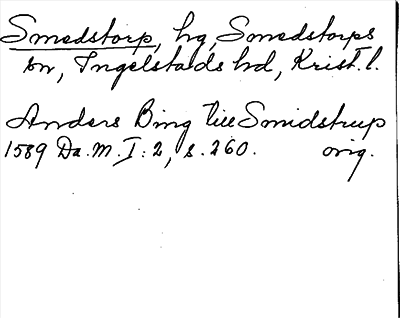 Smedstorp, hg, Smedstorps
sn, Ingelstads hd, Krist. l.
Anders Bing till Smidstrup
1589 Da. M. I: 2, s. 260. orig.